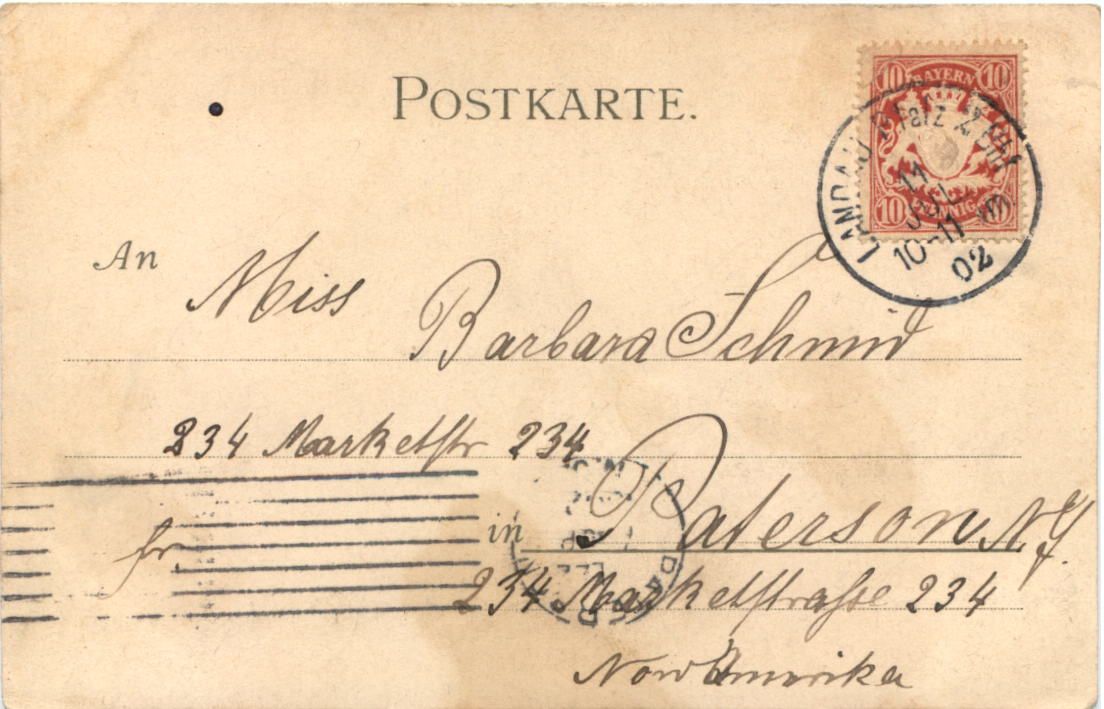 POSTKARTE.
10 BAYERN 10
10 PFENNIG
LANDAU PFALZ
11 JUL
10-11
02
An Miss Barbara Schmid
234 Marketstr 234
fr.
in Paterson N.J.
234 Marketstraße 234
Nord Amerika